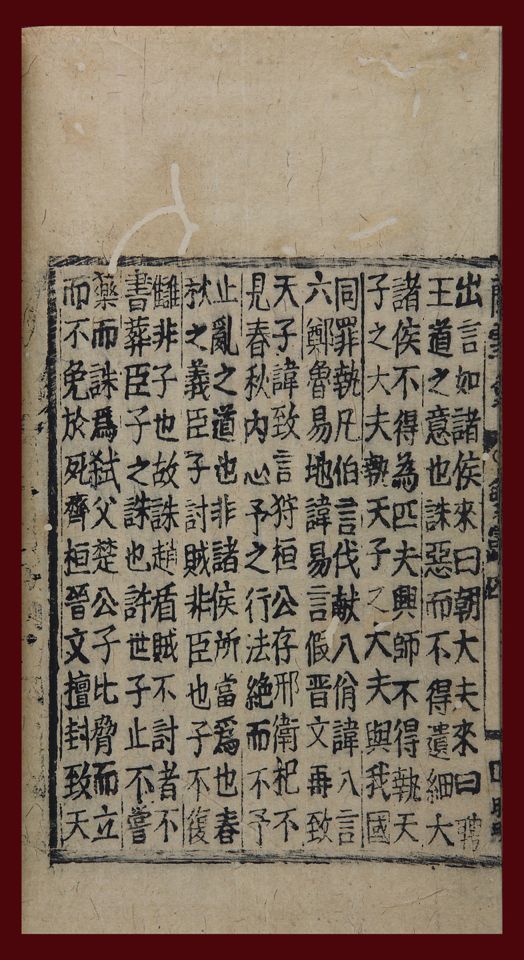 出言如諸侯來曰朝大夫來曰聘
王道之意也誅惡而不得遺細大
諸侯不得為匹夫興師不得執天
子之大夫執天子之大夫與我國
同罪執凡伯言伐献八佾諱八言
六鄭魯易地諱易言假晋文再致
天子諱致言狩桓公存邢衛杞不
見春秋内心予之行法絶而不予
止亂之道也非諸侯所當爲也春
秋之義臣子討賊非臣也子不復
讎非子也故誅趙盾賊不討者不
書葬臣子之誅也許世子止不嘗
藥而誅爲弑父楚公子比脅而立
而不免於死齊桓晉文擅封致天